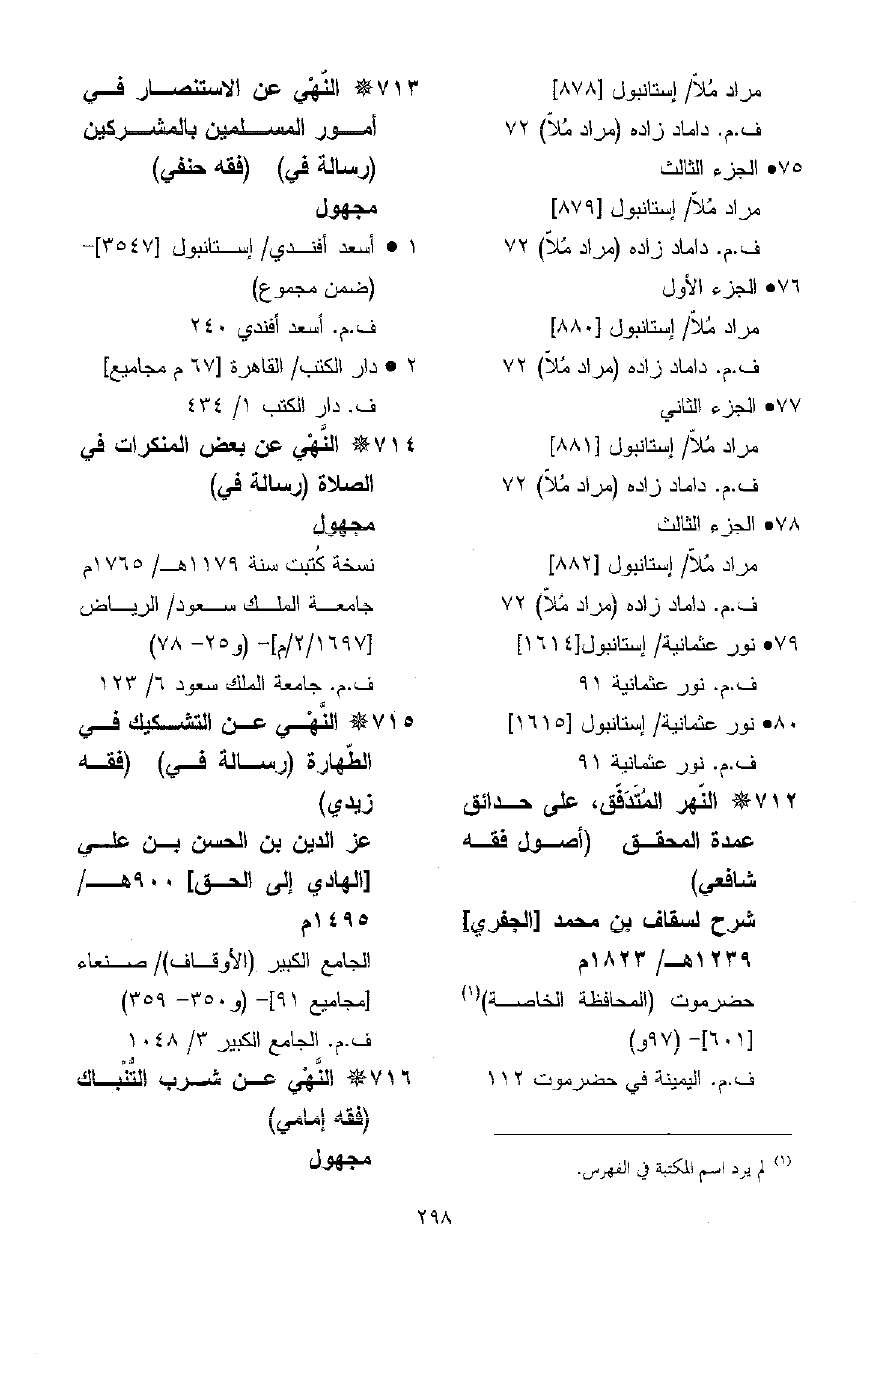 مراد مُلاّ/ إستانبول [٨٧٨]
ف.م. داماد زاده (مراد مُلاّ) ٧٢
٧٥● الجزء الثالث
مراد مُلاّ/ إستانبول [٨٧٩]
ف.م. داماد زاده (مراد مُلاّ) ٧٢
٧٦● الجزء الأول
مراد مُلاّ/ إستانبول [٨٨٠]
ف.م. داماد زاده (مراد مُلاّ) ٧٢
٧٧● الجزء الثاني
مراد مُلاّ/ إستانبول [٨٨١]
ف.م. داماد زاده (مراد مُلاّ) ٧٢
٧٨● الجزء الثالث
مراد مُلاّ/ إستانبول [٨٨٢]
ف.م. داماد زاده (مراد مُلاّ) ٧٢
٧٩● نور عثمانية/ إستانبول[١٦١٤]
ف.م. نور عثمانية ٩١
٨٠● نور عثمانية/ إستانبول [١٦١٥]
ف.م. نور عثمانية ٩١
٧١٢❊ النَّهر المُتَدَفِّق، على حدائق
عمدة المحقق (أصول فقه
شافعي)
شرح لسقاف بن محمد [الجفري]
١٢٣٩هـ/ ١٨٢٣م
حضرموت (المحافظة الخاصة)(١)
[٦٠١]- (٩٧و)
ف.م. اليمينة في حضرموت ١١٢
(١) لم يرد اسم المكتبة في الفهرس.
٧١٣❊ النَّهْي عن الاستنصار في
أمور المسلمين بالمشركين
(رسالة في) (فقه حنفي)
مجهول
١ ● أسعد أفندي/ إستانبول [٣٥٤٧]-
(ضمن مجموع)
ف.م. أسعد أفندي ٢٤٠
٢ ● دار الكتب/ القاهرة [٦٧ م مجاميع]
ف. دار الكتب ١/ ٤٣٤
٧١٤❊ النَّهْي عن بعض المنكرات في
الصلاة (رسالة في)
مجهول
نسخة كُتبت سنة ١١٧٩هـ/ ١٧٦٥م
جامعة الملك سعود/ الرياض
[١٦٩٧/٢/م]- (و٢٥- ٧٨)
ف.م. جامعة الملك سعود ٦/ ١٢٣
٧١٥❊ النَّهْي عن التشكيك في
الطَّهارة (رسالة في) (فقه
زيدي)
عز الدين بن الحسن بن علي
[الهادي إلى الحق] ٩٠٠هـ/
١٤٩٥م
الجامع الكبير (الأوقاف)/ صنعاء
[مجاميع ٩١]- (و٣٥٠- ٣٥٩)
ف.م. الجامع الكبير ٣/ ١٠٤٨
٧١٦❊ النَّهْي عن شرب التُّنْباك
(فقه إمامي)
مجهول
٢٩٨